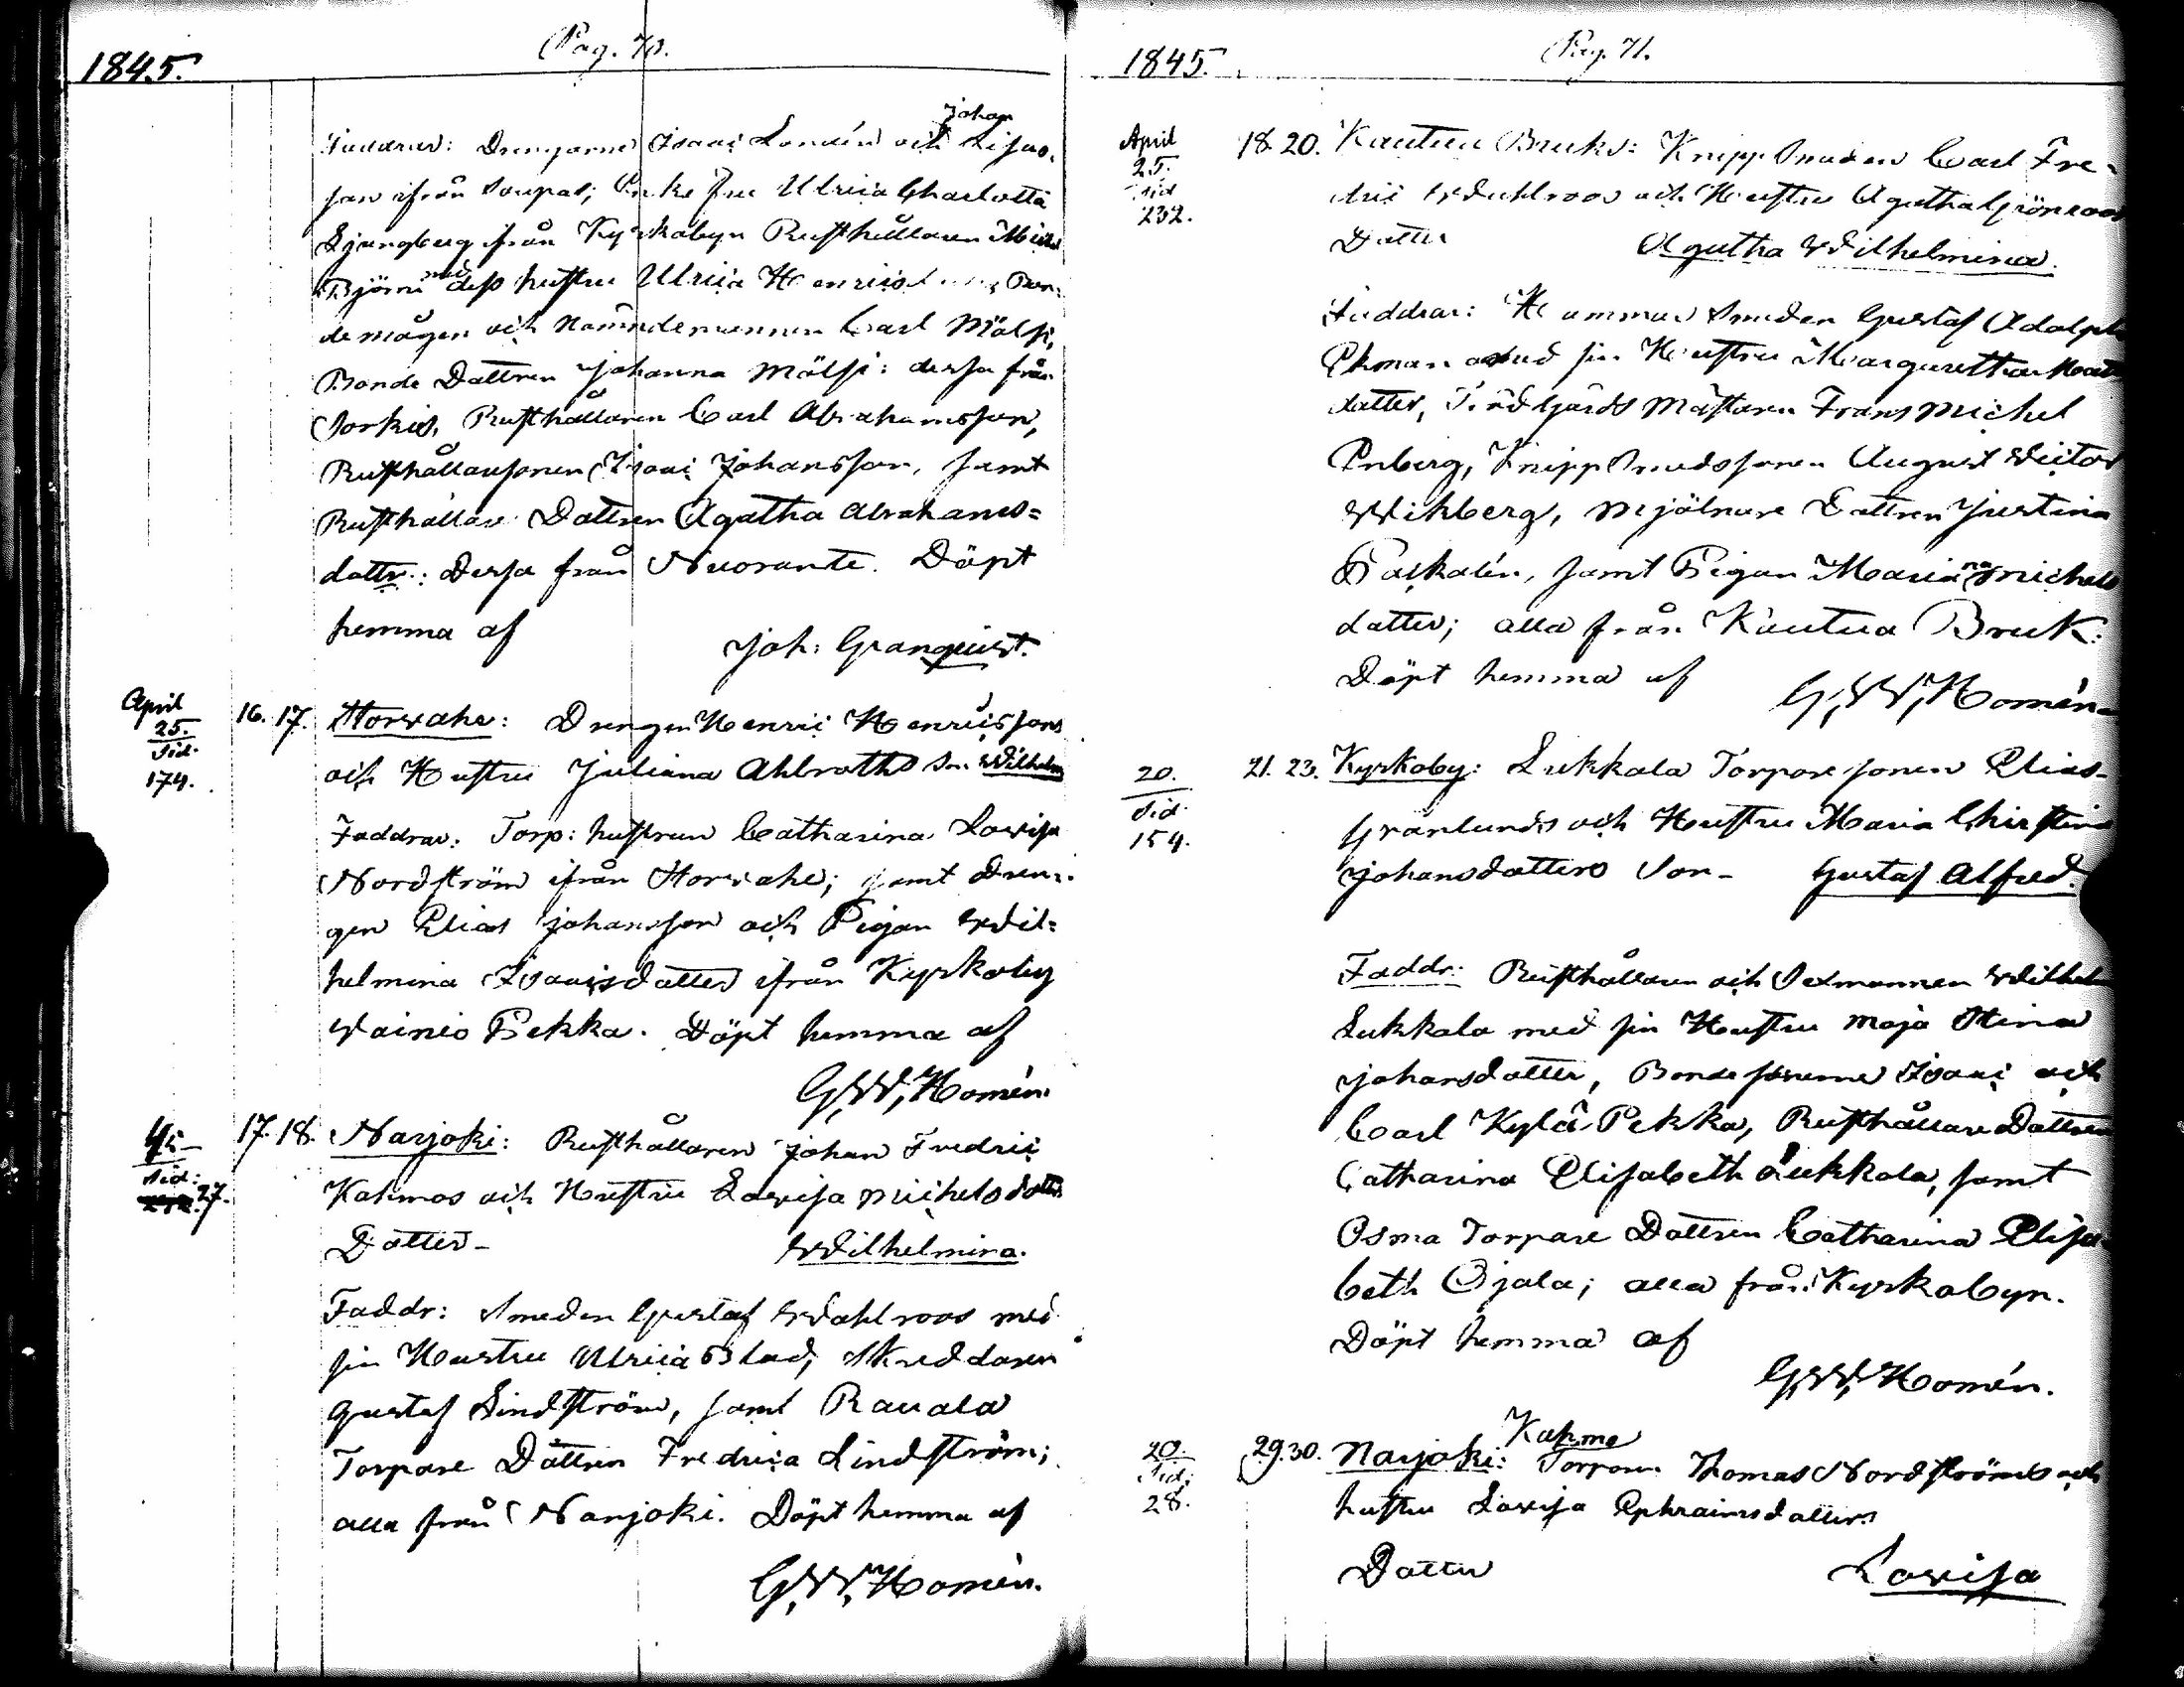 1845.
Pag. 70.
Johan
Faddrar: Drengarne Isaac Londén och Lisas-
son ifrån Soupas; Enke fru Ulrica Charlotta
Ljungberg ifrån Kyrkobyn Rusthållaren Mich:
Björni med dess hustru Ulrica Henrics Bon-
de mågen och Nämndemannen Carl Mälsi,
Bonde Dottren Johanna Mälsi: dessa från
Sorkis, Rusthållaren Carl Abrahamsson,
Rusthållaresonen Isaac Johansson, samt
Rusthållare Dottren Agatha Abrahams=
dottr.: dessa från Nuorante. Döpt
hemma af
Joh: Granquist.
April
25.
Sid.
174.
16. 17. Storvahe: Drengen Henric Henricssons
och Hustru Juliana Ahlroths Son Wilhelm
Faddrar: Torp: hustrun Catharina Lovisa
Nordström ifrån Storvahe; samt dren-
gen Elias Johansson och Pigan Wil=
helmina Isaacsdotter ifrån Kyrkoby
Wainio Pekka. Döpt hemma af
G,W,Homén.
45
Sid:
27.
17. 18. Narjoki: Rusthållaren Johan Fredric
Kahmos och Hustru Lovisa Michelsdotters
Dotter- Wilhelmina.
Faddr: Smeden Gustaf Wahlroos med
sin Hustru Ulrica Blad, Skreddaren
Gustaf Lindström, samt Rauala
Torpare Dottren Fredrica Lindström;
alla från Narjoki. Döpt hemma af
G,W,Homén.
1845.
Pag. 71.
April
25.
Sid
232.
18. 20. Kautua Bruks: Knipp Smeden Carl Fre-
dric Wahlroos och Hustru Agatha Grönroos
Dotter Agatha Wilhelmina.
Faddrar: Hammar Smeden Gustaf Adolph
Ekman med sin Hustru Margaretha Matts
dotter, Trädgårds Mästaren Frans Michel
Enberg, Knipp Smedssonen August Victor
Wikberg, Mjölnare Dottren Justina
Paskalin, samt Pigan Maria na Michels
dotter; alla från Kautua Bruk.
Döpt hemma af
G,W,Homén.
20.
Sid.
154.
21. 23. Kyrkoby: Lukkala Torpare sonen Elias
Grönlunds och Hustru Maria Christina
Johansdotters Son- Gustaf Alfred.
Faddr: Rusthållaren och Sexmannen Wilhelm
Lukkala med sin Hustru Maja Stina
Johansdotter, Bonde sönerne Isaac och
Carl Kylä-Pekka, Rusthållare Dottren
Catharina Elisabeth Lukkala, samt
Osma Torpare Dottren Catharina Elisa-
beth Ojala; alla från Kyrkobyn.
Döpt hemma af
G,W,Homén.
20.
Sid;
28.
Kahma
29. 30. Narjoki: Torparen Thomas Nordströms och
hustru Lovisa Ephraimsdotters
Dotter Lovisa